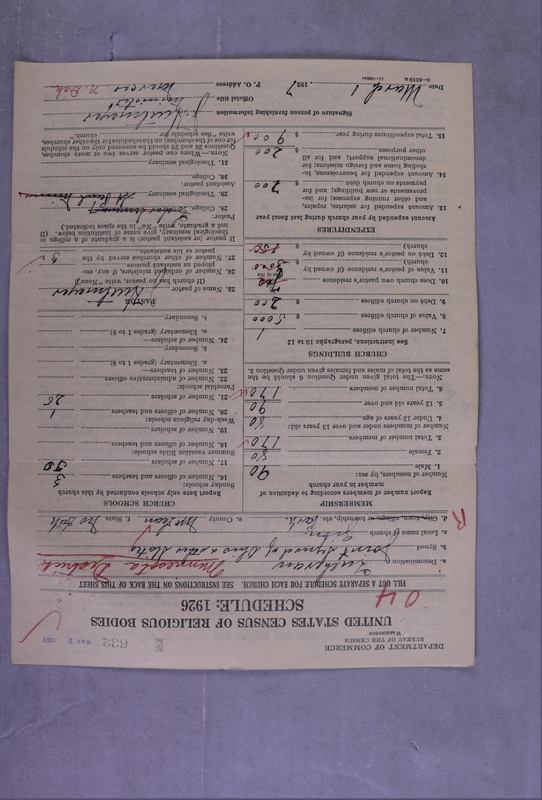 DEPARTMENT OF COMMERCE
BUREAU OF THE CENSUS
WASHINGTON
632
MAR 3 1927
UNITED STATES CENSUS OF RELIGIOUS BODIES
SCHEDULE: 1926
04
FILL OUT A SEPARATE SCHEDULE FOR EACH CHURCH. SEE INSTRUCTIONS ON THE BACK OF THIS SHEET
a. Denomination Lutheran Minnesota District
b. Synod Joint Synod of Ohio & other States
c. Local name of church
d. City, town, village, or township, etc. Park e. County McLean f. State No Dak
R
MEMBERSHIP
Report number of members according to definition of member in your church
Number of members, by sex:
1. Male 90
2. Female 80
3. Total members 170
Number of members under and over 13 years old:
4. Under 13 years of age 80
5. 13 years old and over 90
6. Total number of members 170
NOTE.—The total given under Question 6 should be the same as the total of males and females given under Question 3.
CHURCH BUILDINGS
See instructions, paragraphs 10 to 12
7. Number of church edifices 1
8. Value of church edifices $ 5000
9. Debt on church edifices $ 200
10. Does church own pastor's residence yes
11. Value of pastor's residence (if owned by church) $ 3500
12. Debt on pastor's residence (if owned by church) $ 850
EXPENDITURES
Amount expended by your church during last fiscal year
13. Amount expended for salaries, repairs, and other running expenses; for improvements or new building; and for payments on church debt $ 700
14. Amount expended for benevolences, including home and foreign missions; for denominational support; and for all other purposes $ 200
15. Total expenditures during year $ 900
CHURCH SCHOOLS
Report here only schools conducted by this church
Sunday schools:
16. Number of officers and teachers 3
17. Number of scholars 50
Summer vacation Bible schools:
18. Number of officers and teachers
19. Number of scholars
Week-day religious schools:
20. Number of officers and teachers 1
21. Number of scholars 25
Parochial schools:
22. Number of administrative officers
23. Number of teachers—
a. Elementary (grades 1 to 8)
b. Secondary
24. Number of scholars—
a. Elementary (grades 1 to 8)
b. Secondary
PASTOR
25. Name of pastor
(If church has no pastor, write "None")
26. Number of ordained ministers, if any, employed as assistant pastors
27. Number of other churches served by the pastor or his assistants 3
If pastor (or assistant pastor) is a graduate of a college or theological seminary, give name of institution below. (If not a graduate, write "No" in the space indicated.)
Pastor:
28. College
29. Theological seminary St Paul Minn
Assistant pastor:
30. College
31. Theological seminary
NOTE.—Where one pastor serves two or more churches, Questions 28 and 29 should be answered only on the schedule for one of the churches; on the schedules for the other churches, write "See schedule for church."
Signature of person furnishing information
Official title
P. O. Address N. Dak
Date March 1 1927